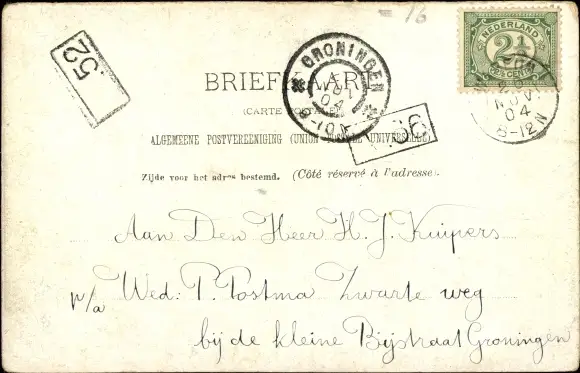 = 16
52
NEDERLAND
2½
CENT
GRONINGEN
NOV
04
8-10
NOV.
04
8-12N
BRIEFKAART
(CARTE POSTALE)
36
ALGEMEENE POSTVEREENIGING (UNION POSTALE UNIVERSELLE)
Zijde voor het adres bestemd. (Côté réservé à l'adresse.)
Aan Den Heer H. J. Kuipers
p/a Wed: P. Postma Zwarte weg
bij de kleine Bijstraat Groningen